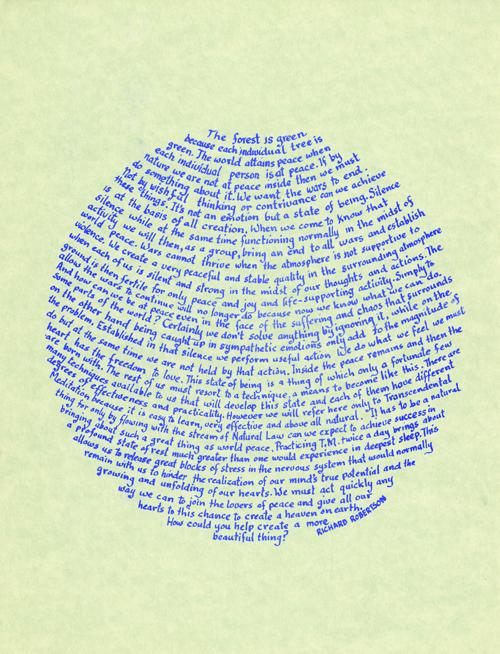 The forest is green
because each individual tree is
green. The world attains peace when
each individual person is at peace. If by
nature we are not at peace inside then we must
do something about it. We want the wars to end.
Not by wishful thinking or contrivance can we achieve
these things. It's not an emotion but a state of being. Silence
is at the basis of all creation. When we come to know that
silence while at the same time functioning normally in the midst of
activity we will then, as a group, bring an end to all wars and establish
world peace. Wars cannot thrive when the atmosphere is not supportive to
violence. We create a very peaceful and stable quality in the surrounding atmosphere
when each of us is silent and strong in the midst of our thoughts and actions. The
ground is then fertile for only peace and joy and life-supporting activity. Simply to
allow the wars to continue will no longer do because now we know what we can do.
And how can we be at peace even in the face of the suffering and chaos that surrounds
some parts of the world? Certainly we don't solve anything by ignoring it, while on the
on the other hand being caught up in sympathetic emotions only add to the magnitude of
the problem. Established in that silence we perform useful action. We do what we feel we must
do but at the same time we are not held by that action. Inside the peace remains and then the
heart has the freedom to love. This state of being is a thing of which only a fortunate few
are born with. The rest of us must resort to a technique, a means to become like this. There are
many techniques available to us that will develop this state and each of them have different
degrees of effectiveness and practicality. However we will refer here only to Transcendental
Meditation because it is easy to learn, very effective and above all natural. It has to be a natural
thing for only by flowing with the stream of Natural Law can we expect to achieve success in
bringing about such a great thing as world peace. Practicing T.M. twice a day brings about
a profound state of rest much greater than one would experience in deepest sleep. This
allows us to release great blocks of stress in the nervous system that would normally
remain with us to hinder the realization of our mind's true potential and the
growing and unfolding of our hearts. We must act quickly any
way we can to join the lovers of peace and give all our
hearts to this chance to create a heaven on earth.
How could you help create a more
beautiful thing?
RICHARD ROBERTSON